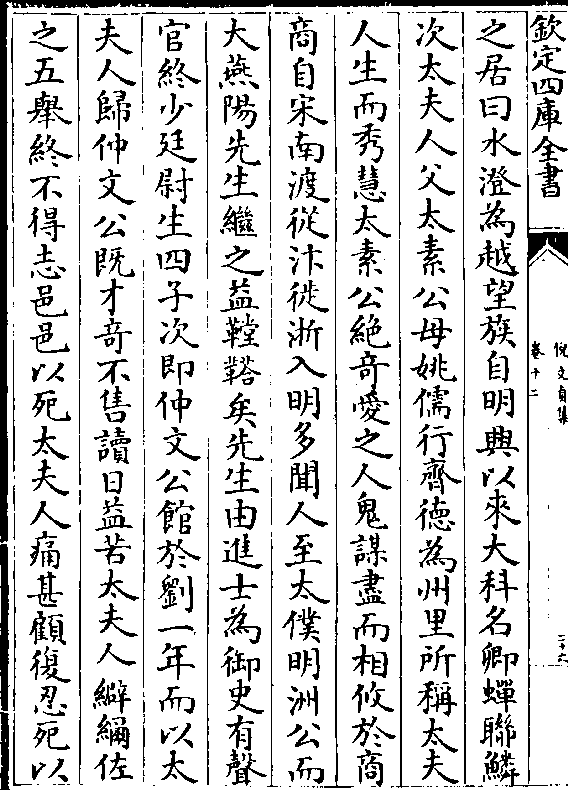 欽定四庫全書
倪文貞集
卷十二
之居曰水澄為越望族自明興以來大科名卿蟬聯鱗
次太夫人父太素公母姚儒行齊德為州里所稱太夫
人生而秀慧太素公絶奇愛之人鬼謀盡而相攸於商
商自宋南渡從汴徙浙入明多聞人至太僕明洲公而
大燕陽先生繼之益鞺鞳矣先生由進士為御史有聲
官終少廷尉生四子次即仲文公館於劉一年而以太
夫人歸仲文公既才奇不售讀日益苦太夫人辮繃佐
之五舉終不得志邑邑以死太夫人痛甚顧復忍死以